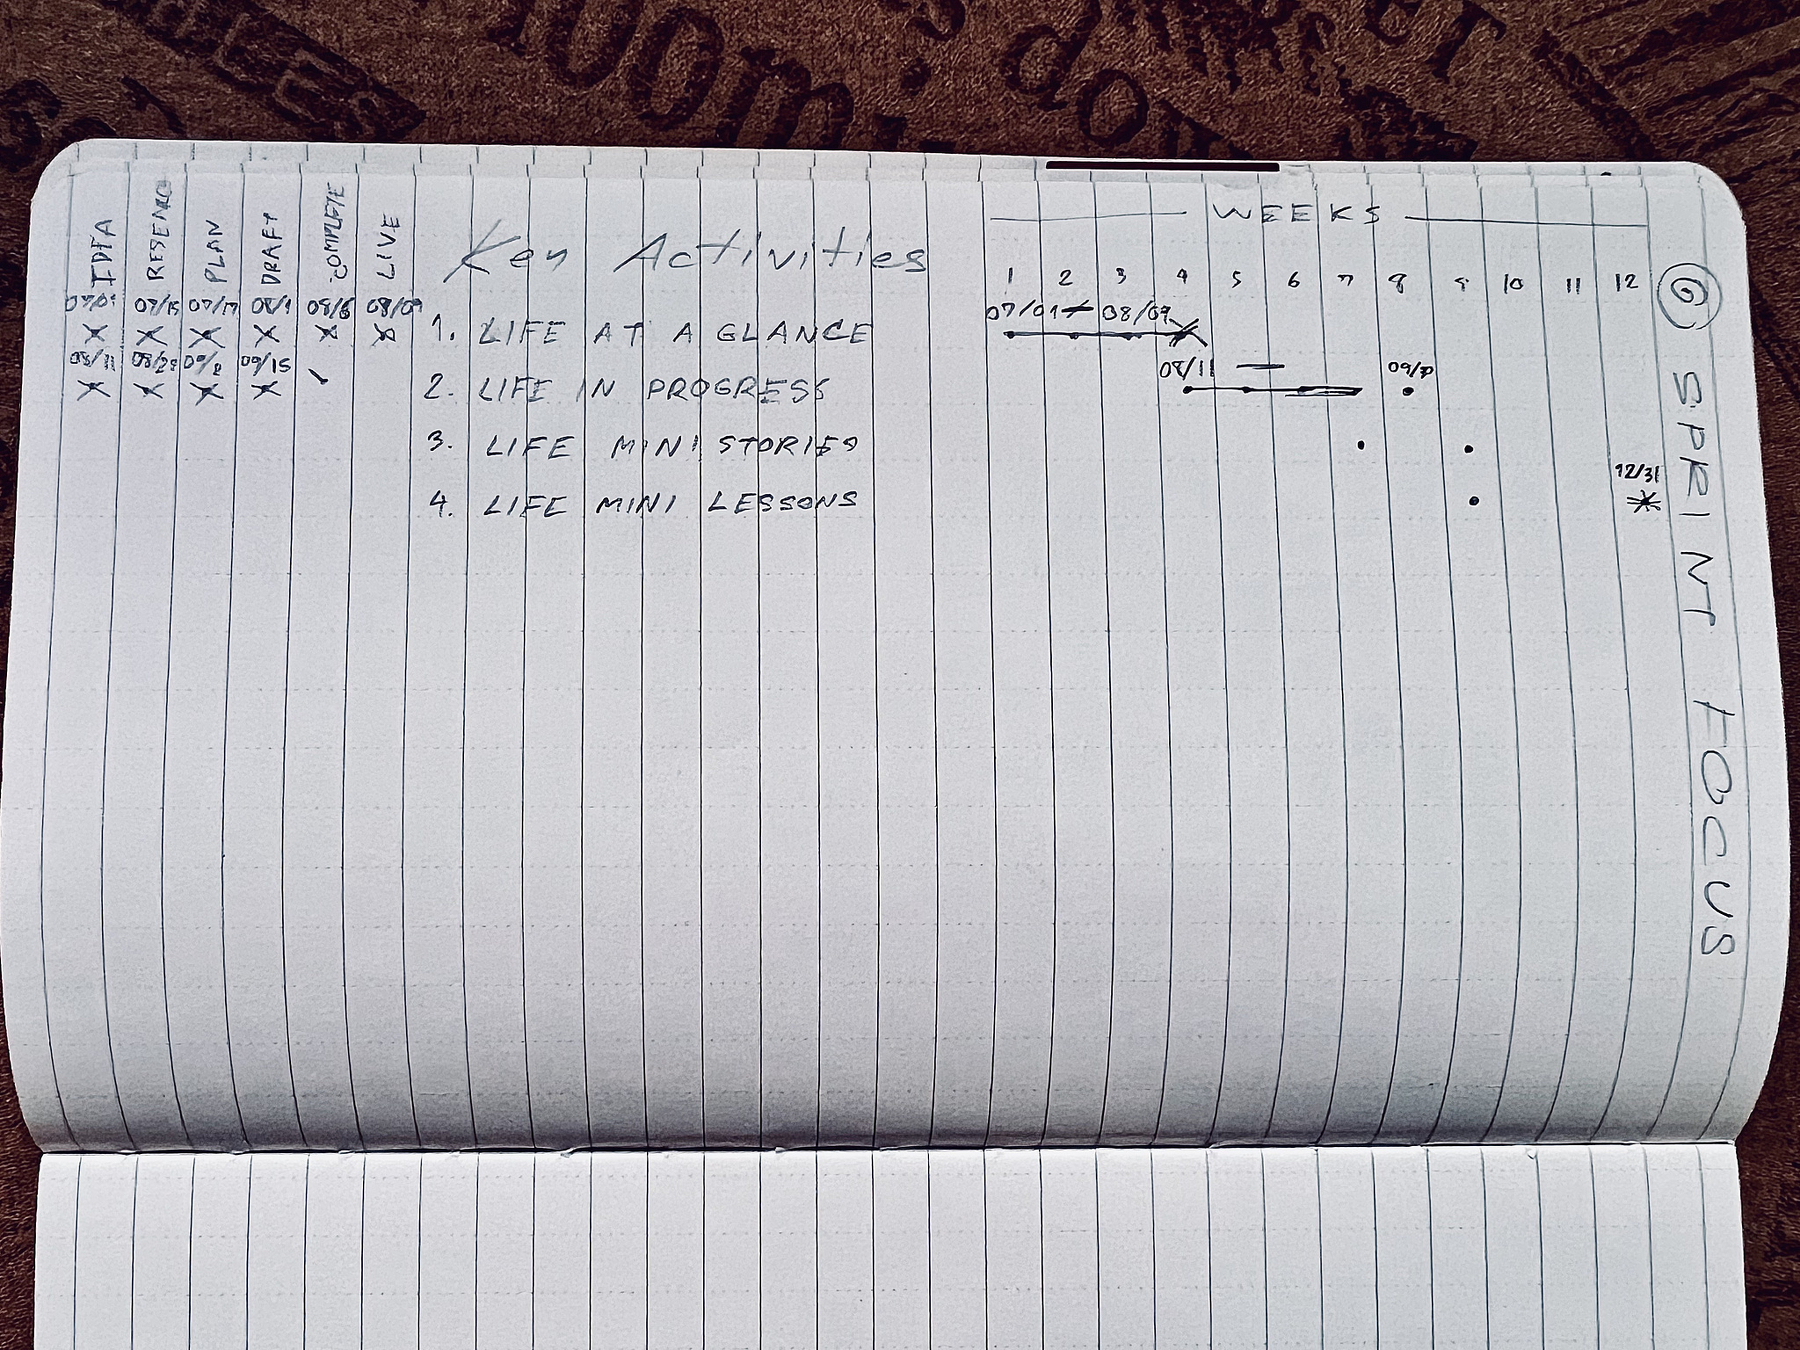 WEEKS
IDEA RESEARCH PLAN DRAFT COMPLETE LIVE Key Activities 1 2 3 4 5 6 7 8 9 10 11 12
07/15 07/17 08/1 08/6 08/09 07/01 08/09
X X X X X X 1. LIFE AT A GLANCE
08/11 08/28 09/15 08/11
X X X X 2. LIFE IN PROGRESS
3. LIFE MINI STORIES
12/31
4. LIFE MINI LESSONS
6 SPRINT FOCUS
100m